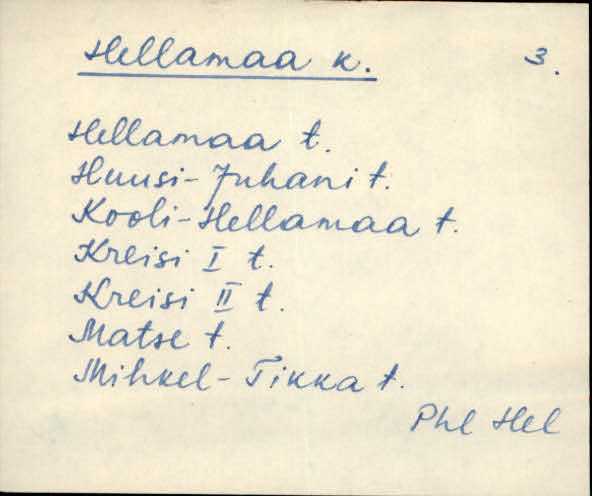 Hellamaa k. 3.
Hellamaa t.
Huusi-Juhani t.
Kooli-Hellamaa t.
Kreisi I t.
Kreisi II t.
Matse t.
Mihkel-Tikka t.
Phl Hel